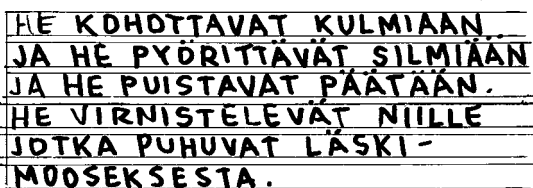 HE KOHOTTAVAT KULMIAAN
JA HE PYÖRITTÄVÄT SILMIÄÄN
JA HE PUISTAVAT PÄÄTÄÄN.
HE VIRNISTELEVÄT NIILLE
JOTKA PUHUVAT LÄSKI-
MOOSEKSESTA.